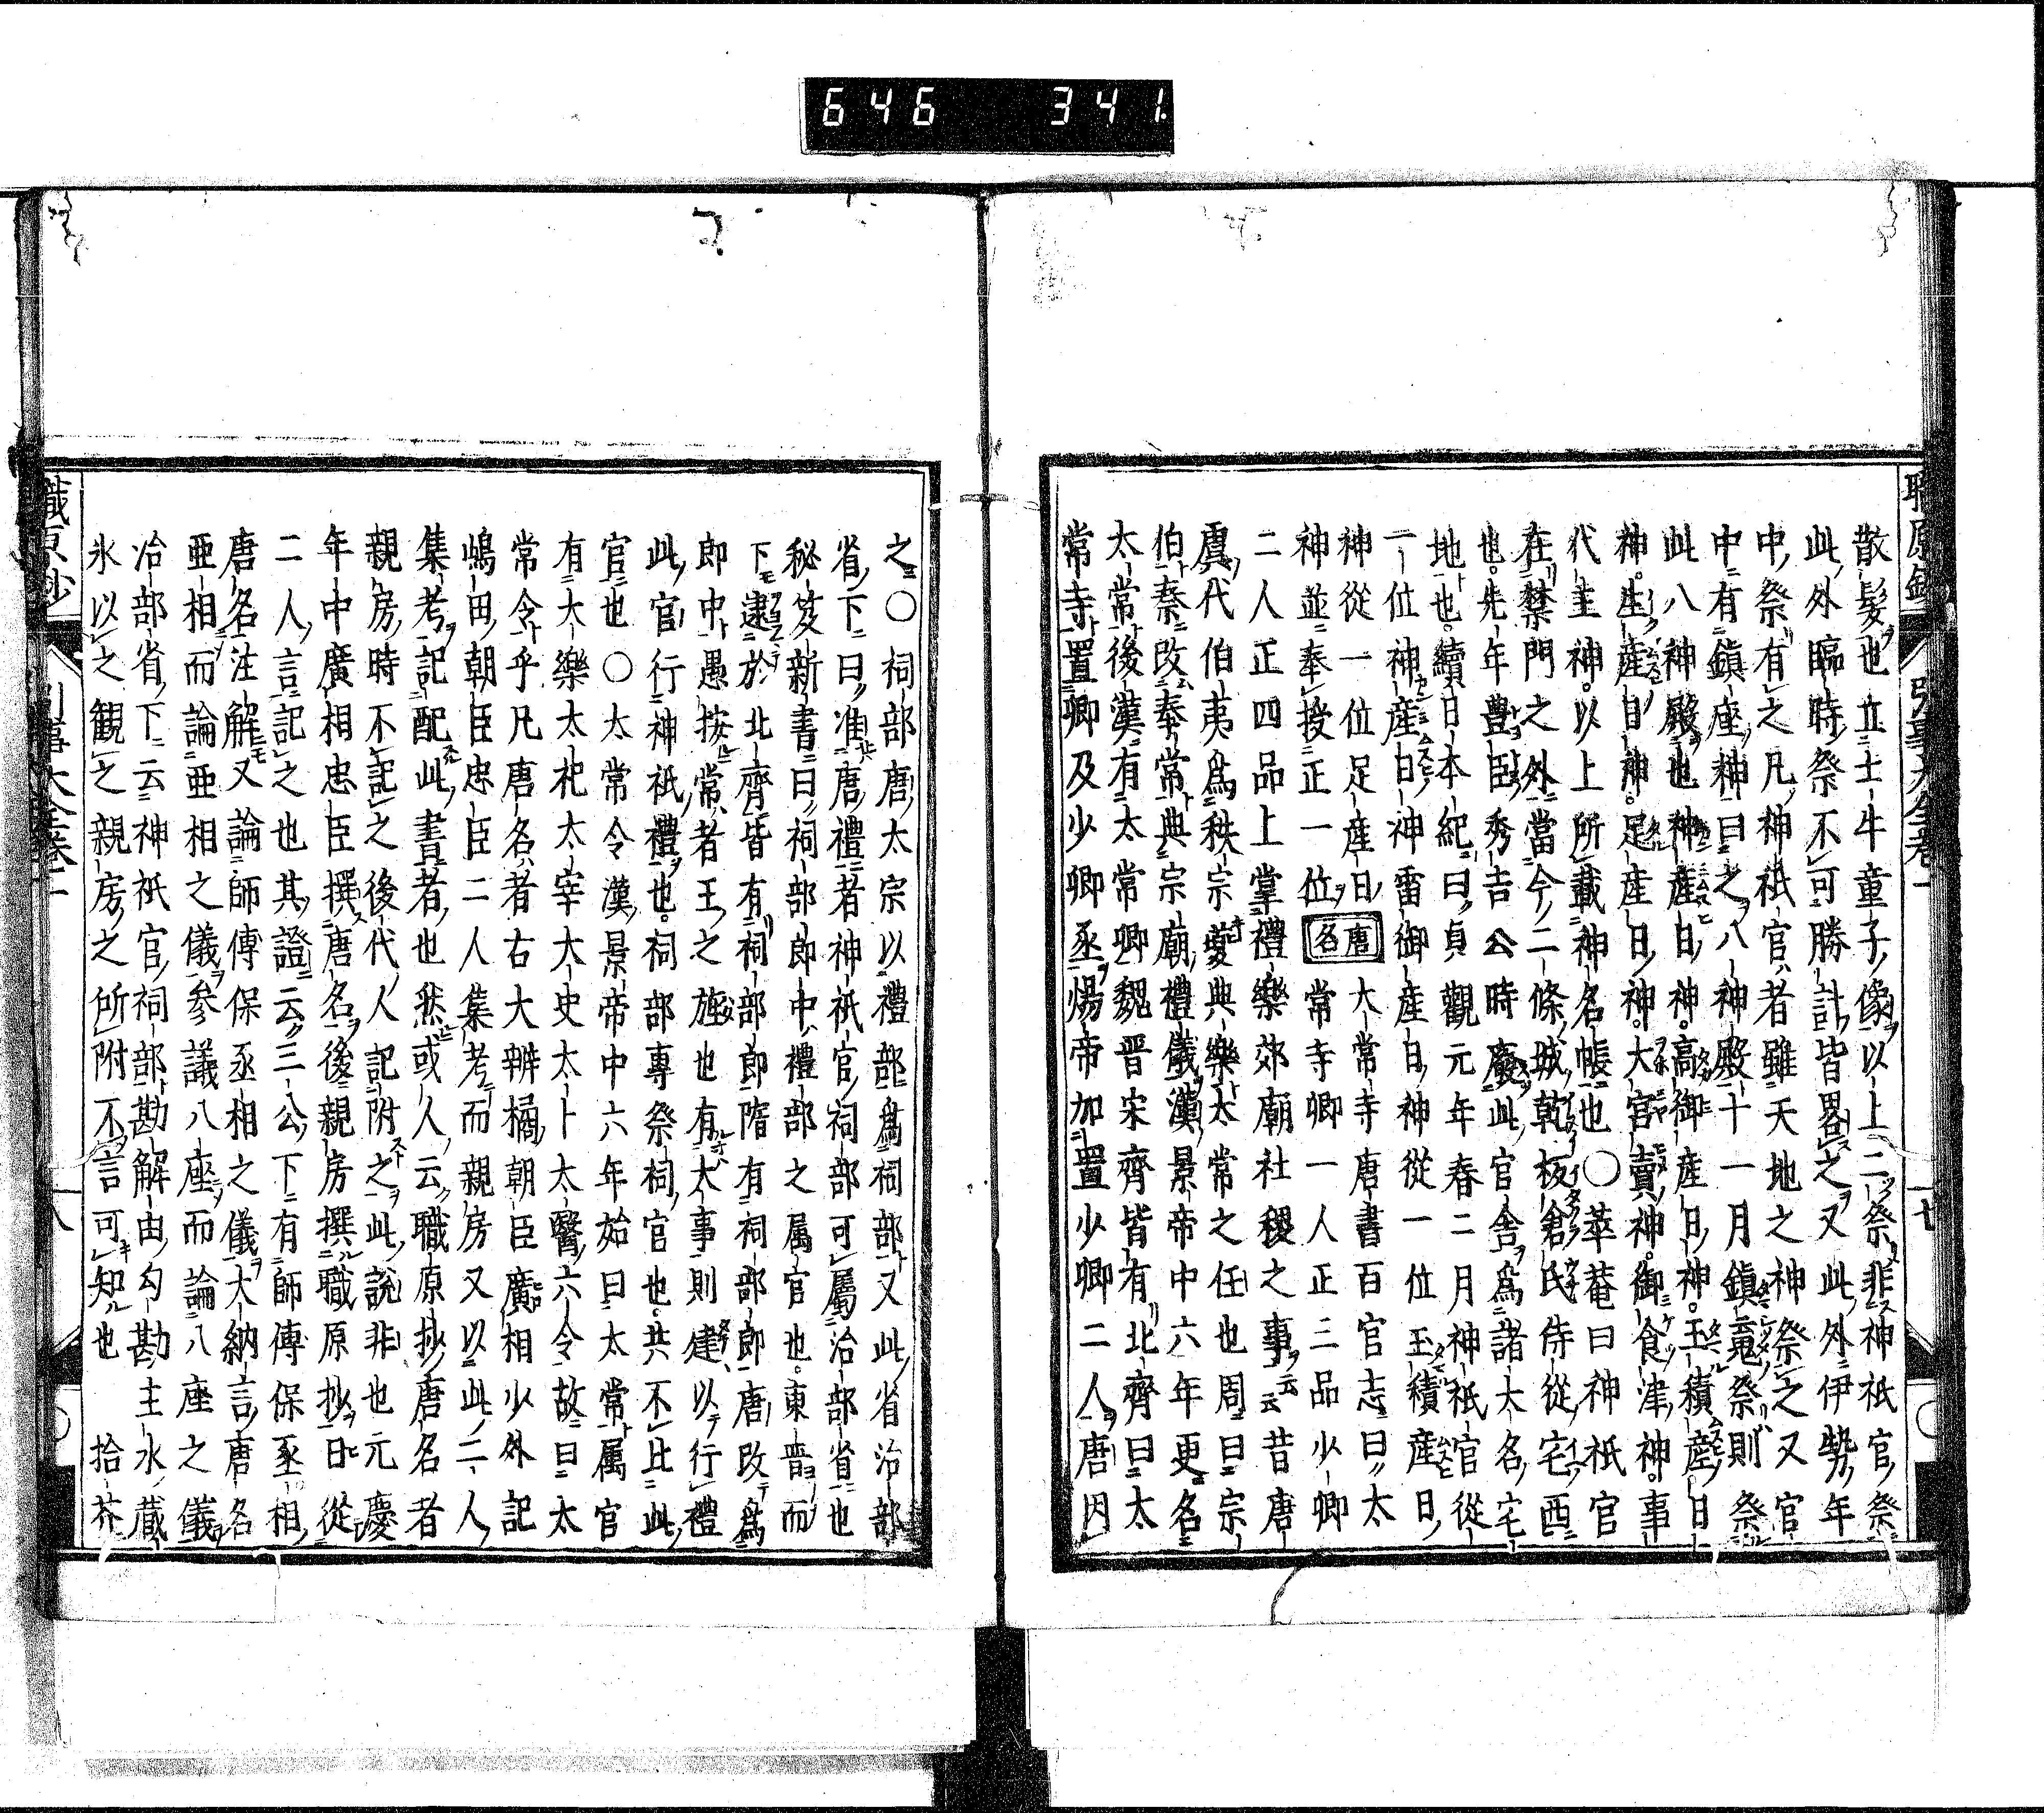 646 341.
散髪也立土牛童子像以上二祭非神祇官祭
此外臨時祭不可勝計皆畧之又此外伊勢年
中祭有之凡神祇官者雖天地之神祭之又官
中有鎮座神曰之八神殿十一月鎮䰟祭則祭
此八神殿也神産日神。高御産日神。玉積産日
神。生産日神。足産日神。大宮賣神。御食津神。事
代主神。以上所載神名帳也〇萃菴曰神祇官
在禁門之外當今二條城乾板倉氏侍從宅西
也。先年豊臣秀吉公時廢此官舎爲諸大名宅
地也。續日本紀曰貞觀元年春二月神祇官從
一位神産日神雷御産日神從一位玉積産日
神從一位足産日大常寺唐書百官志曰太
神並奉授正一位 唐名 常寺卿一人正三品少卿
二人正四品上掌禮樂郊廟社稷之事云云昔唐
虞代伯夷爲秩宗夔典樂太常之任也周曰宗
伯秦改奉常典宗廟禮儀漢景帝中六年更名
太常後漢有太常卿魏晋宋齊皆有北齊曰太
常寺置卿及少卿丞煬帝加置少卿二人唐因
之〇祠部唐太宗以禮部爲祠部又此省治部
省下曰准唐禮者神祇官祠部可屬治部省也
秘笈新書曰祠部郎中禮部之属官也。東晋而
下逮於北齊皆有祠部郎隋有祠部郎唐改爲
郎中愚按常者王之旌也有大事則建以行禮
此官行神祇禮也。祠部專祭祠官也。共不比此
官也〇太常令漢景帝中六年始曰太常属官
有大樂太祀太宰大史太卜太醫六令故曰太
常令乎凡唐名者右大辨橘朝臣廣相少外記
嶋田朝臣忠臣二人集考而親房又以此二人
集考記配此書者也然或人云職原抄唐名者
親房時不記之後代人記附之此說非也元慶
年中廣相忠臣撰唐名後親房撰職原抄日從
二人言記之也其證云三公下有師傳保丞相
唐名注解又論師傳保丞相之儀大納言唐名
亜相而論亜相之儀參議八座而論八座之儀
治部省下云神祇官祠部勘解由勾勘主水藏
氷以之観之親房之所附不言可知也 拾芥